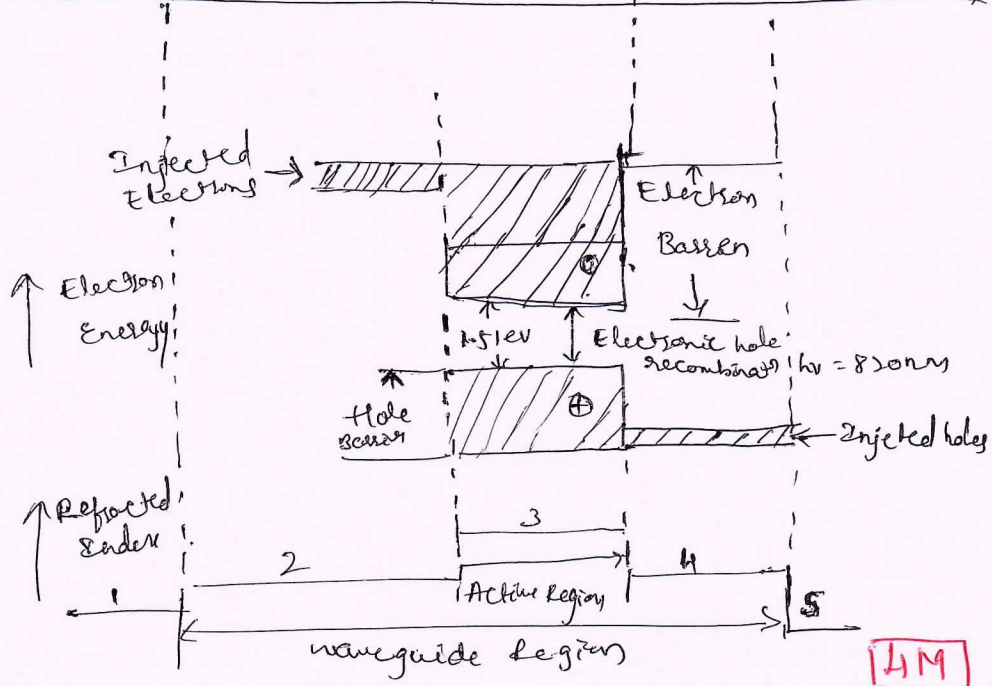 Injected
Electrons
Electron
Barren
Electron
Energy
1.51eV
Electronic hole
recombinat hν = 820nm
Hole
Injected holes
Refracted
Index
1
2
3
4
5
Active Region
waveguide Region
4M